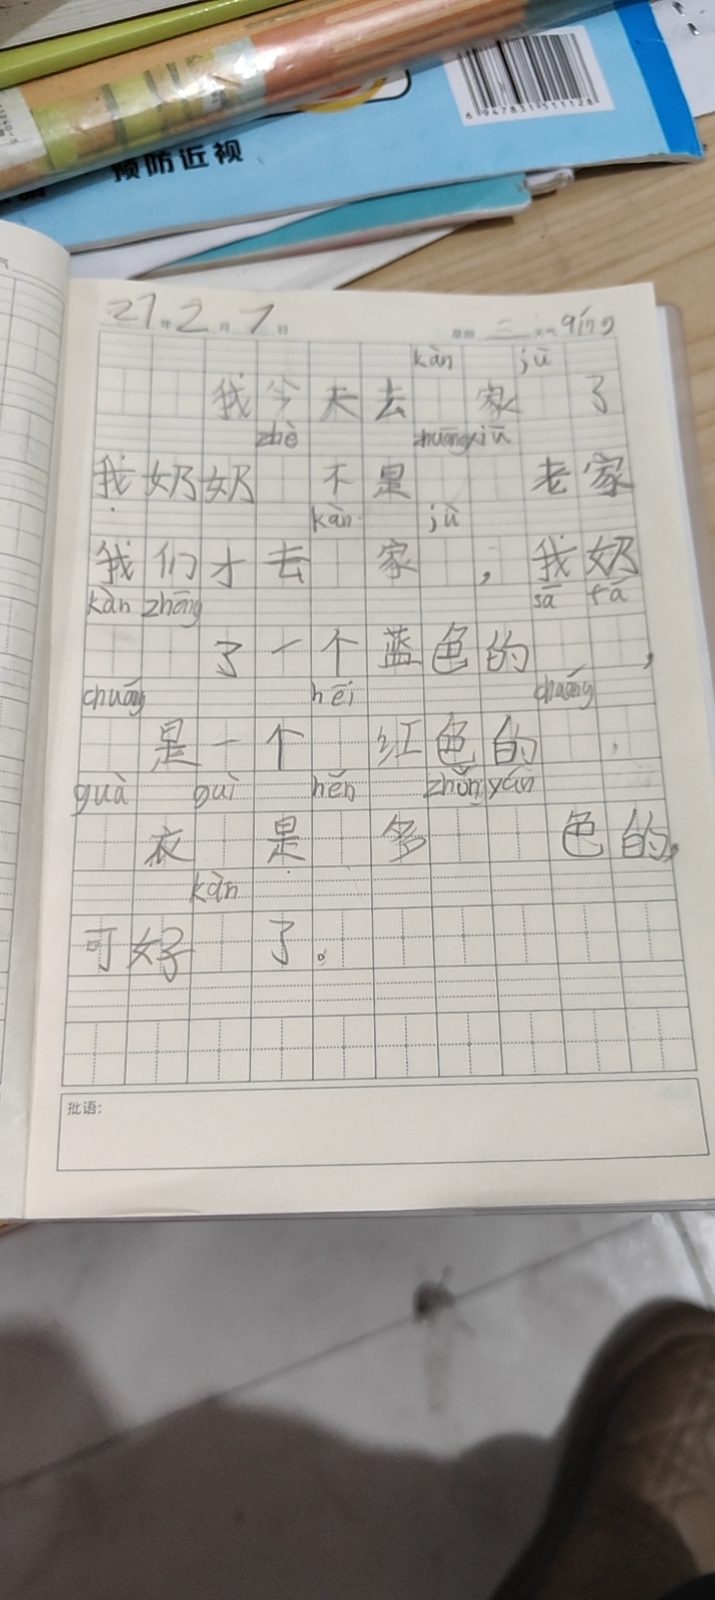 6 947831 511128
预防近视
27年2月7日 星期三 天气qíng
kàn jù
我今天去 家 了
zhè zhuāngxiū
我奶奶 不是 老家
kàn jù
我们才去 家 ，我奶
kàn zhōng sā fā
了一个蓝色的 ，
chuāng hēi chuáng
是一个 红色的 ，
guà guì hěn zhǒn yán
衣 是 多 色的，
kàn
可好 了。
批语：